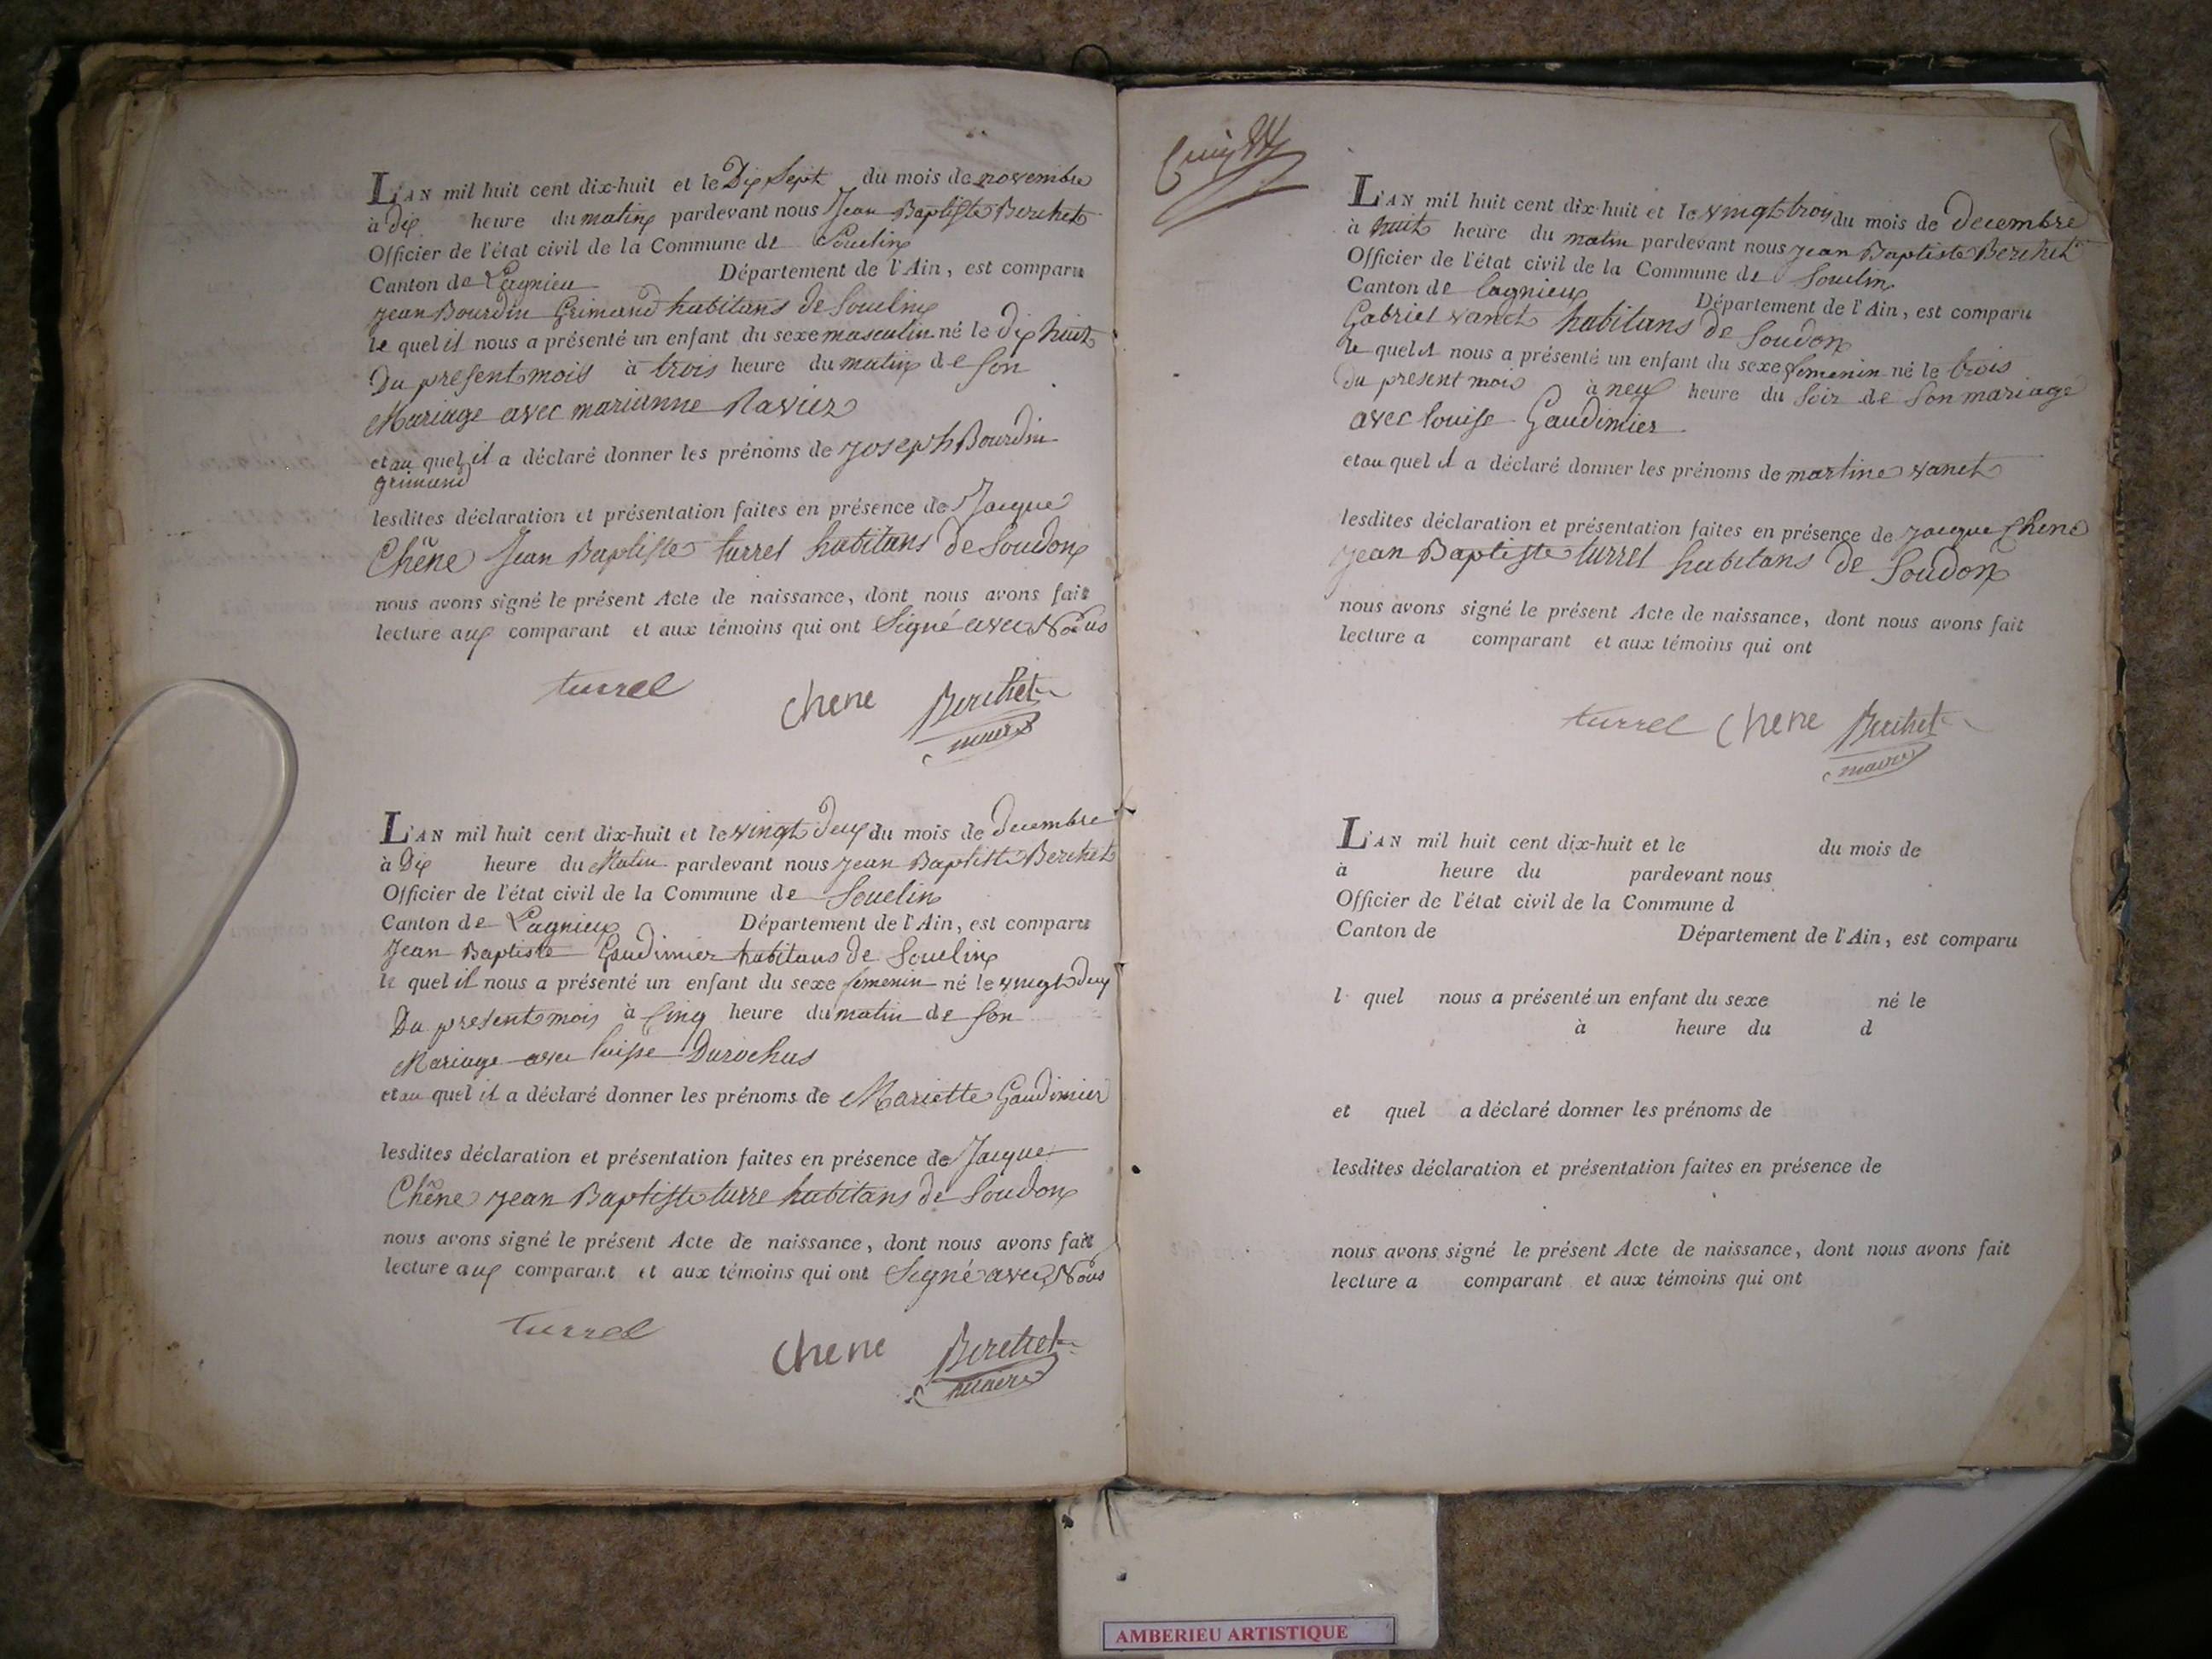 L'AN mil huit cent dix-huit et le Dix Sept du mois de novembre
à dix heure du matin pardevant nous Jean Baptiste Berthet
Officier de l'état civil de la Commune de Souclin
Canton de Lagnieu Département de l'Ain, est comparu
jean Bourdin Grimaud habitans de Souclin
le quel il nous a présenté un enfant du sexe masculin né le dix huit
Du present mois à trois heure du matin de son
Mariage avec marianne Ravier
et au quel il a déclaré donner les prénoms de joseph Bourdin
grimaud
lesdites déclaration et présentation faites en présence de Jacque
Chêne Jean Baptiste turrel habitans de Soudon
nous avons signé le présent Acte de naissance, dont nous avons fait
lecture aux comparant et aux témoins qui ont Signé avec Nous
turrel chene Berthet
maire
L'AN mil huit cent dix-huit et le vingt deux du mois de decembre
à Dix heure du Matin pardevant nous jean Baptiste Berthet
Officier de l'état civil de la Commune de Souclin
Canton de Lagnieux Département de l'Ain, est comparu
Jean Baptiste Gaudimier habitans de Souclin
le quel il nous a présenté un enfant du sexe femenin né le vingt deux
Du present mois à Cinq heure du matin de son
Mariage avec luise Durochas
et au quel il a déclaré donner les prénoms de Mariette Gaudimier
lesdites déclaration et présentation faites en présence de Jacque
Chêne jean Baptiste turre habitans de Soudon
nous avons signé le présent Acte de naissance, dont nous avons fait
lecture aux comparant et aux témoins qui ont Signé avec Nous
turrel chene Berthet
maire
L'AN mil huit cent dix-huit et le vingt troi du mois de decembre
à huit heure du matin pardevant nous jean Baptiste Berthet
Officier de l'état civil de la Commune de Souclin
Canton de lagnieux Département de l'Ain, est comparu
Gabriel vanet habitans de Soudon
le quel il nous a présenté un enfant du sexe femenin né le trois
du present mois à neuf heure du Soir de Son mariage
avec louise Gaudimier
et au quel il a déclaré donner les prénoms de martine vanet
lesdites déclaration et présentation faites en présence de jacque Chene
jean Baptiste turrel habitans de Soudon
nous avons signé le présent Acte de naissance, dont nous avons fait
lecture a comparant et aux témoins qui ont
turrel Chene Berthet
maire
L'AN mil huit cent dix-huit et le du mois de
à heure du pardevant nous
Officier de l'état civil de la Commune d
Canton de Département de l'Ain, est comparu
l quel nous a présenté un enfant du sexe né le
à heure du d
et quel a déclaré donner les prénoms de
lesdites déclaration et présentation faites en présence de
nous avons signé le présent Acte de naissance, dont nous avons fait
lecture a comparant et aux témoins qui ont
AMBERIEU ARTISTIQUE